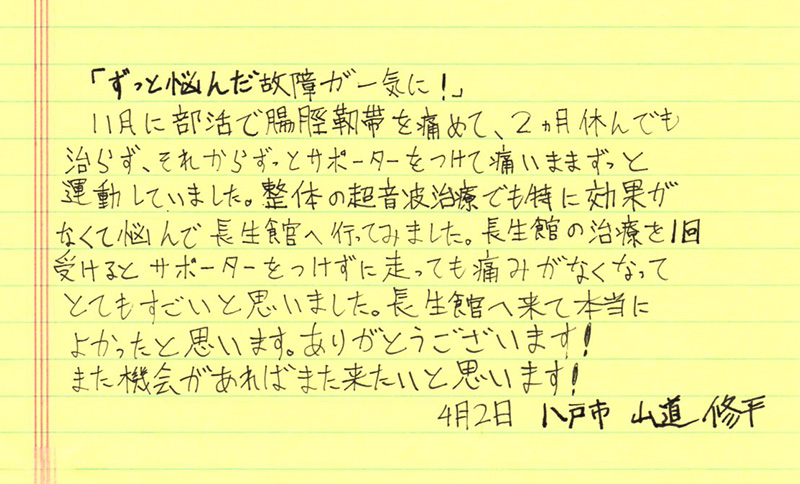 「ずっと悩んだ故障が一気に！」
11月に部活で腸脛靭帯を痛めて、2ヵ月休んでも
治らず、それからずっとサポーターをつけて痛いままずっと
運動していました。整体の超音波治療でも特に効果が
なくて悩んで長生館へ行ってみました。長生館の治療を1回
受けるとサポーターをつけずに走っても痛みがなくなって
とてもすごいと思いました。長生館へ来て本当に
よかったと思います。ありがとうございます！
また機会があればまた来たいと思います！
4月2日 八戸市 山道 修平